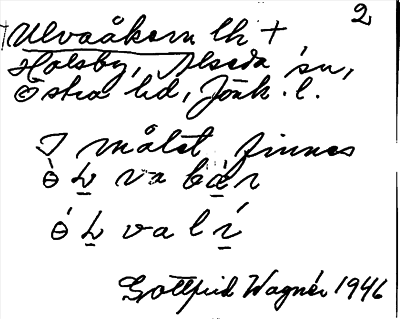 2
Ulvaåkern lh +
Holsby, Alseda sn,
Östra hd, Jönk. l.
I målet finnes
va bär
va l
Gottfrid Wagnér 1946